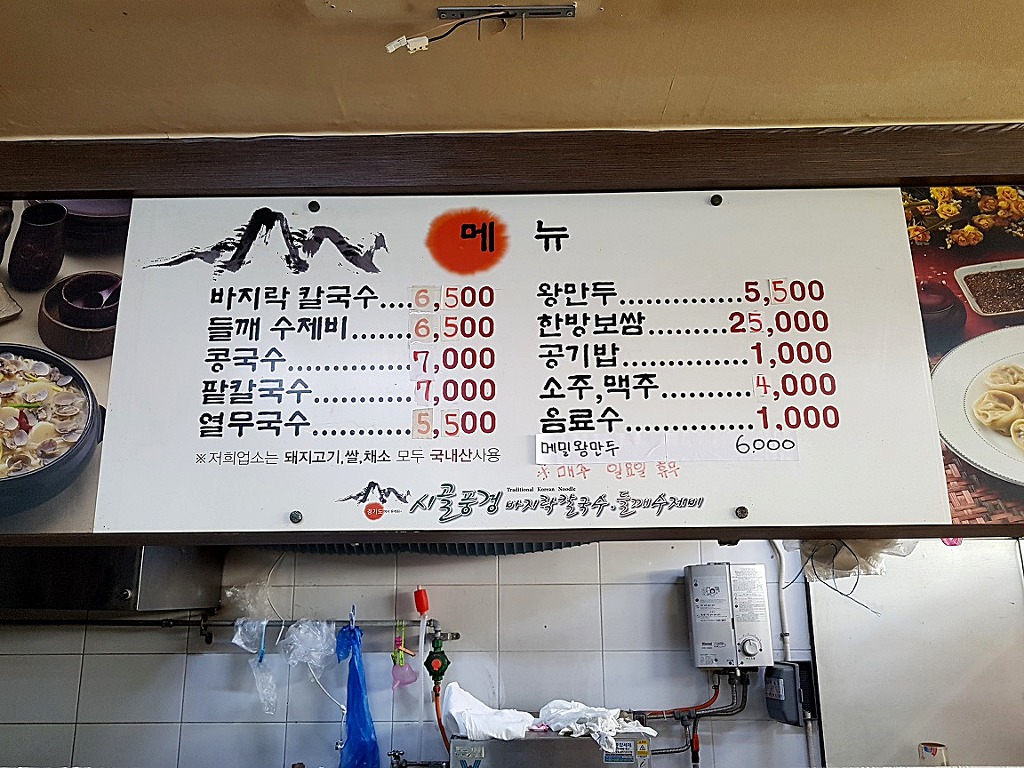 메 뉴
바지락 칼국수....6,500
들깨 수제비.......6,500
콩국수..............7,000
팥칼국수...........7,000
열무국수...........5,500
왕만두..............5,500
한방보쌈.........25,000
공기밥..............1,000
소주,맥주..........4,000
음료수..............1,000
메밀왕만두 6,000
※저희업소는 돼지고기,쌀,채소 모두 국내산사용
※ 매주 일요일 휴무
경기도
시골풍경
Traditional Korean Noodle
바지락칼국수·들깨수제비